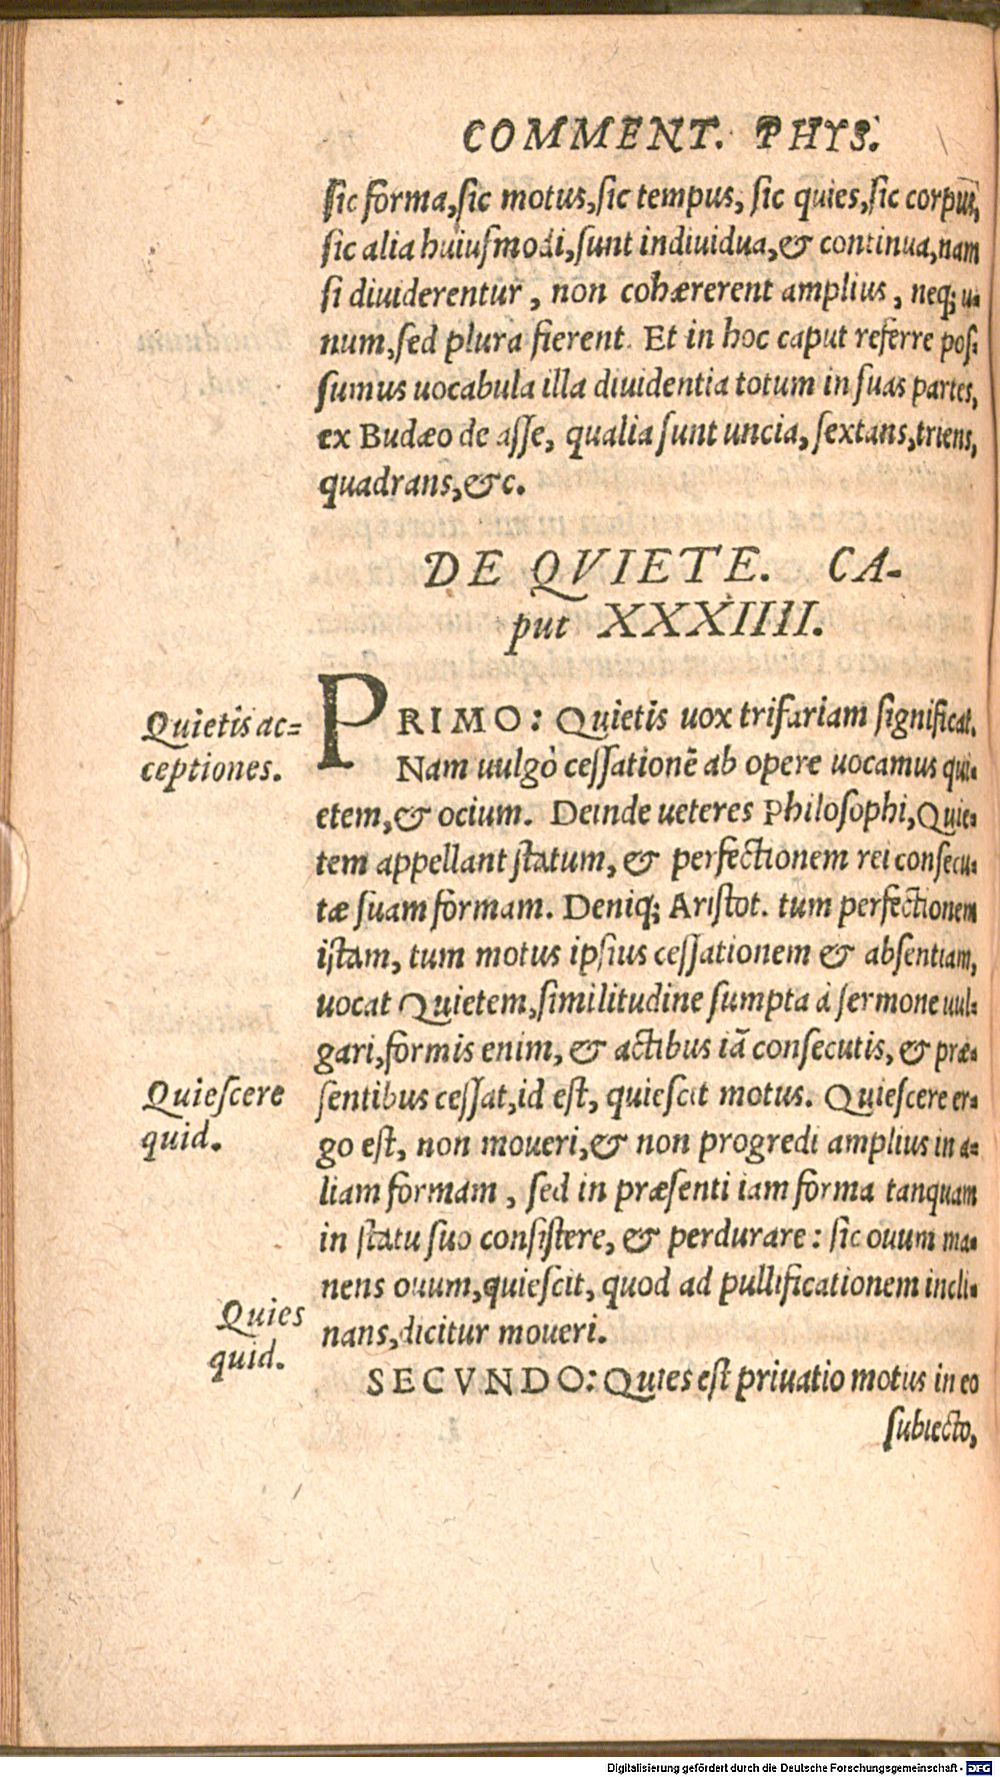 COMMENT. PHYS.
sic forma, sic motus, sic tempus, sic quies, sic corpus,
sic alia huiusmodi, sunt indiuidua, & continua, nam
si diuiderentur, non cohærerent amplius, neq; u-
num, sed plura fierent. Et in hoc caput referre pos-
sumus uocabula illa diuidentia totum in suas partes,
ex Budæo de asse, qualia sunt uncia, sextans, triens,
quadrans, &c.
DE QVIETE. CA-
put XXXIIII.
Quietis ac=
ceptiones.
PRIMO: Quietis uox trifariam significat.
Nam uulgò cessationē ab opere uocamus qui-
etem, & ocium. Deinde ueteres Philosophi, Quie-
tem appellant statum, & perfectionem rei consecu-
tæ suam formam. Deniq; Aristot. tum perfectionem
istam, tum motus ipsius cessationem & absentiam,
uocat Quietem, similitudine sumpta à sermone uul-
gari, formis enim, & actibus iā consecutis, & præ-
Quiescere
quid.
sentibus cessat, id est, quiescit motus. Quiescere er-
go est, non moueri, & non progredi amplius in a-
liam formam, sed in præsenti iam forma tanquam
in statu suo consistere, & perdurare: sic ouum ma-
nens ouum, quiescit, quod ad pullificationem incli-
nans, dicitur moueri.
Quies
quid.
SECVNDO: Quies est priuatio motus in eo
subiecto,
Digitalisierung gefördert durch die Deutsche Forschungsgemeinschaft - DFG